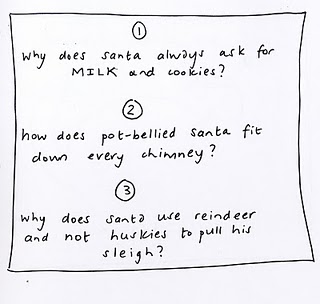 1
Why does santa always ask for
MILK and cookies?
2
how does pot-bellied santa fit
down every chimney?
3
why does santa use reindeer
and not huskies to pull his
sleigh?